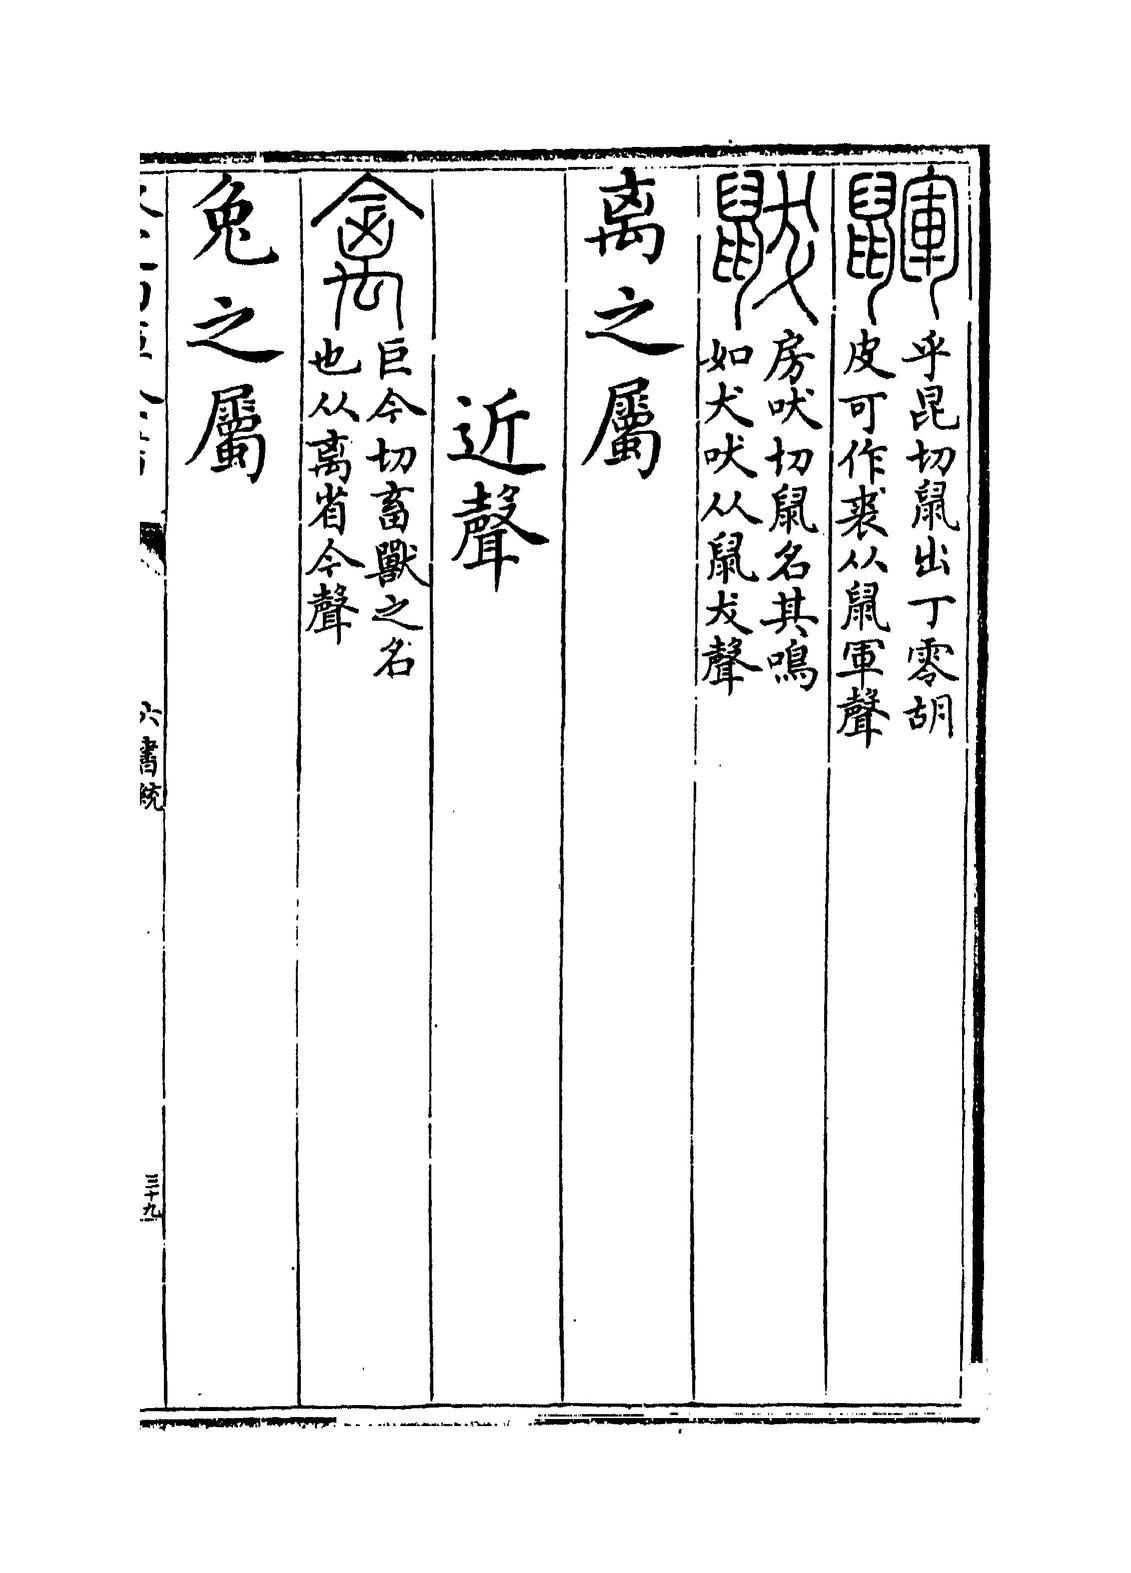 鼲 乎昆切鼠出丁零胡
皮可作裘从鼠軍聲
鼥 房吠切鼠名其鳴
如犬吠从鼠犮聲
离之屬
近聲
禽 巨今切畜獸之名
也从离省今聲
兔之屬
六書統
三十九